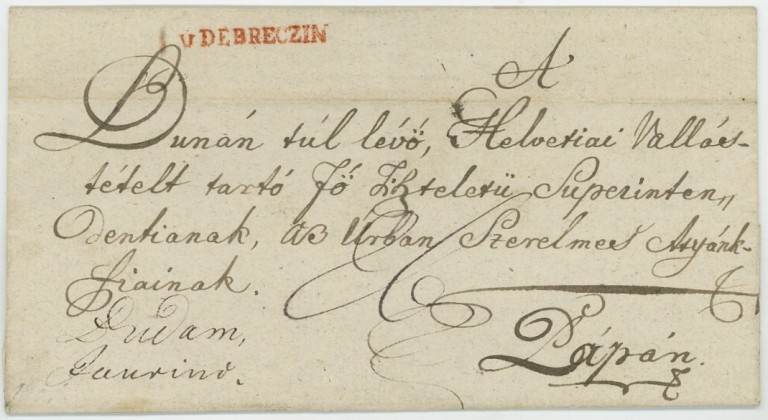 v DEBRECZIN
A
Dunán túl lévő, Helvetiai Vallás-
tételt tartó Fő Tiszteletü Superinten„
dentianak, az Urban Szerelmes Atyánk-
fiainak.
Budam,
Jaurino.
Pápán.